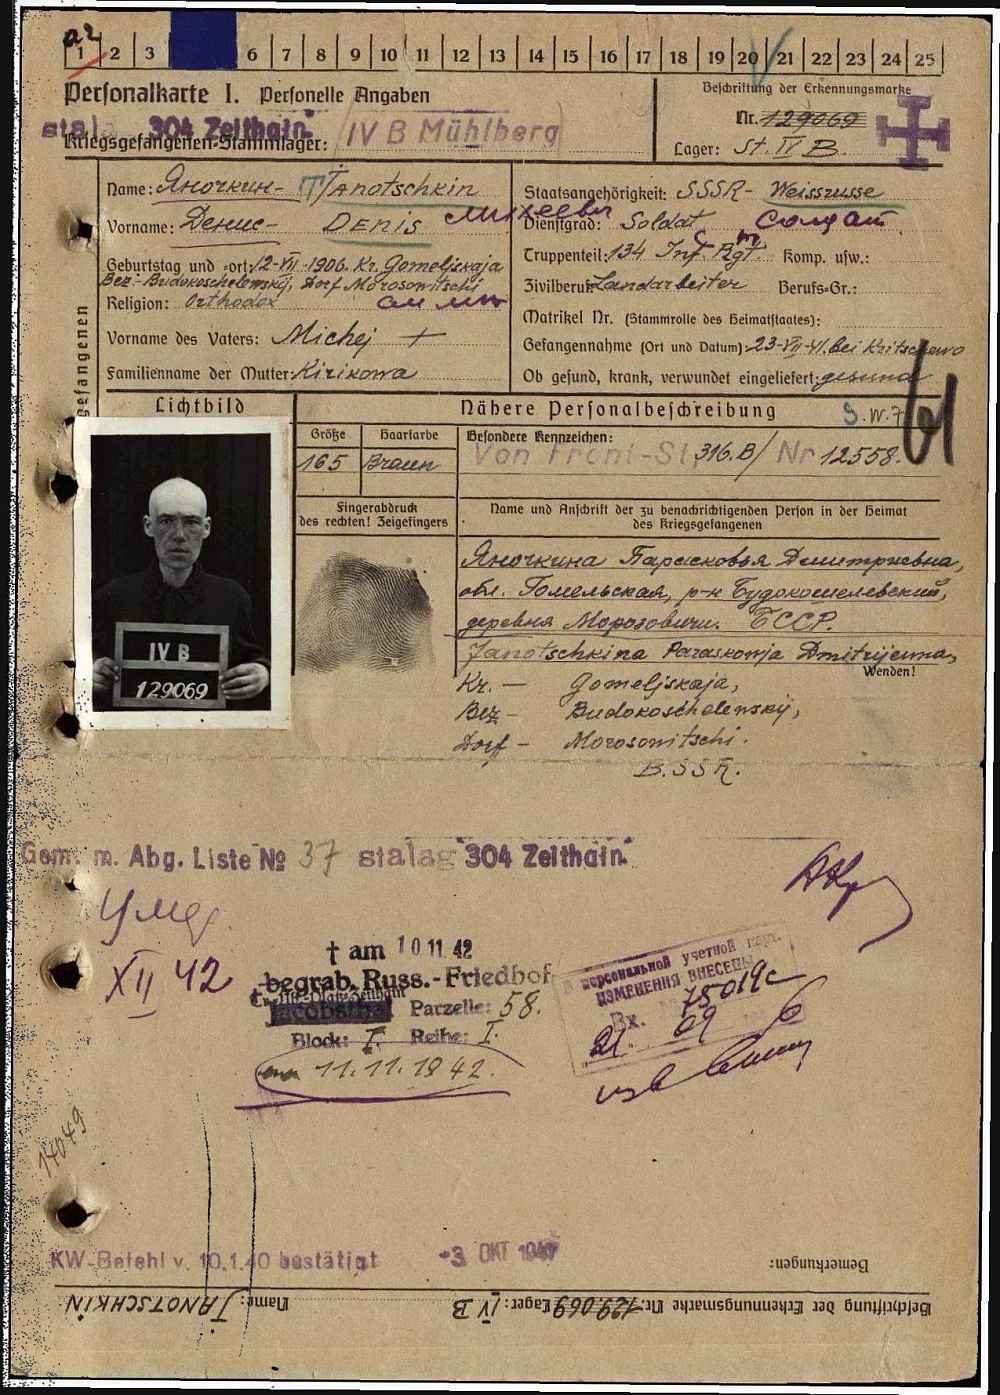 1 2 3 6 7 8 9 10 11 12 13 14 15 16 17 18 19 20 21 22 23 24 25
Personalkarte I. Personelle Angaben
Beschriftung der Erkennungsmarke
Nr. 129069
stalag 304 Zeithain
IV B Mühlberg
Kriegsgefangenen-Stammlager:
Lager: St. IV B.
Name: Яночкин- Janotschkin
Staatsangehörigkeit: SSSR- Weissrusse
Vorname: Денис- DENIS Михеевич
Dienstgrad: Soldat Солдат
Geburtstag und -ort: 12-VII-1906. Kr. Gomeljskaja
Truppenteil: 134 Inf. Rgt. Komp. usw.:
Bez.- Budokoschelewskij, Dorf Morosowitschi
Religion: Orthodox
Zivilberuf: Landarbeiter Berufs-Gr.:
Matrikel Nr. (Stammrolle des Heimatstaates):
Vorname des Vaters: Michej +
Gefangennahme (Ort und Datum): 23-VII-41. bei Kritschewo
Familienname der Mutter: Kirikowa
Ob gesund, krank, verwundet eingeliefert: gesund
gefangenen
Lichtbild
Nähere Personalbeschreibung
S.W.7
Größe Haarfarbe Besondere Kennzeichen:
165 Braun Von Front-St. 316.B/ Nr 12558.
Fingerabdruck
des rechten! Zeigefingers
Name und Anschrift der zu benachrichtigenden Person in der Heimat
des Kriegsgefangenen
Яночкина Парасковья Дмитриевна,
обл. Гомельская, р-н Будокошелевский,
деревня Морозовичи. БССР.
Janotschkina Paraskowja Dmitrijewna,
Wenden!
IV B
129069
Kr. - Gomeljskaja,
Bez - Budokoschelewskij,
Dorf - Morosowitschi.
B.SSR.
Gem. m. Abg. Liste № 37 stalag 304 Zeithain
Умер
XII 42
† am 10 11. 42
begrab. Russ.-Friedhof
Jacobsthal Parzelle: 58.
Block: I. Reihe: I.
11.11.1942.
В персональной учетной карт.
ИЗМЕНЕНИЯ ВНЕСЕНЫ
Вх. 75019с
21. 09
14049
KW-Befehl v. 10.1.40 bestätigt
-3 ОКТ 1947
Bemerkungen:
Beschriftung der Erkennungsmarke Nr. 129.069 Lager: IV B Name: JANOTSCHKIN